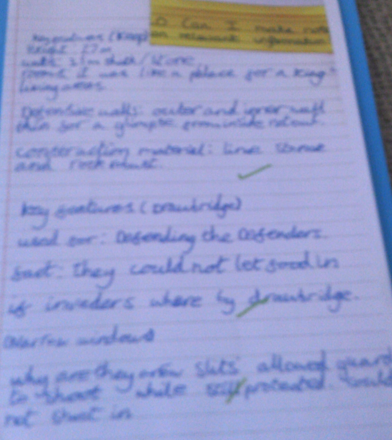 LO Can I make notes
on relevant information
Key features (Keep)
height 27m
walls 3.5m thick / stone
rooms it was like a palace for a king
living areas
Defensive walls: outer and inner wall
for a glimpse from inside
construction material: lime stone
and rock
Key features (Drawbridge)
used for: Defending the Defenders.
fact: They could not let food in
if invaders where by drawbridge.
(Narrow windows)
why are they arrow slits allowed guard
to shoot while still protected. could
not shoot in